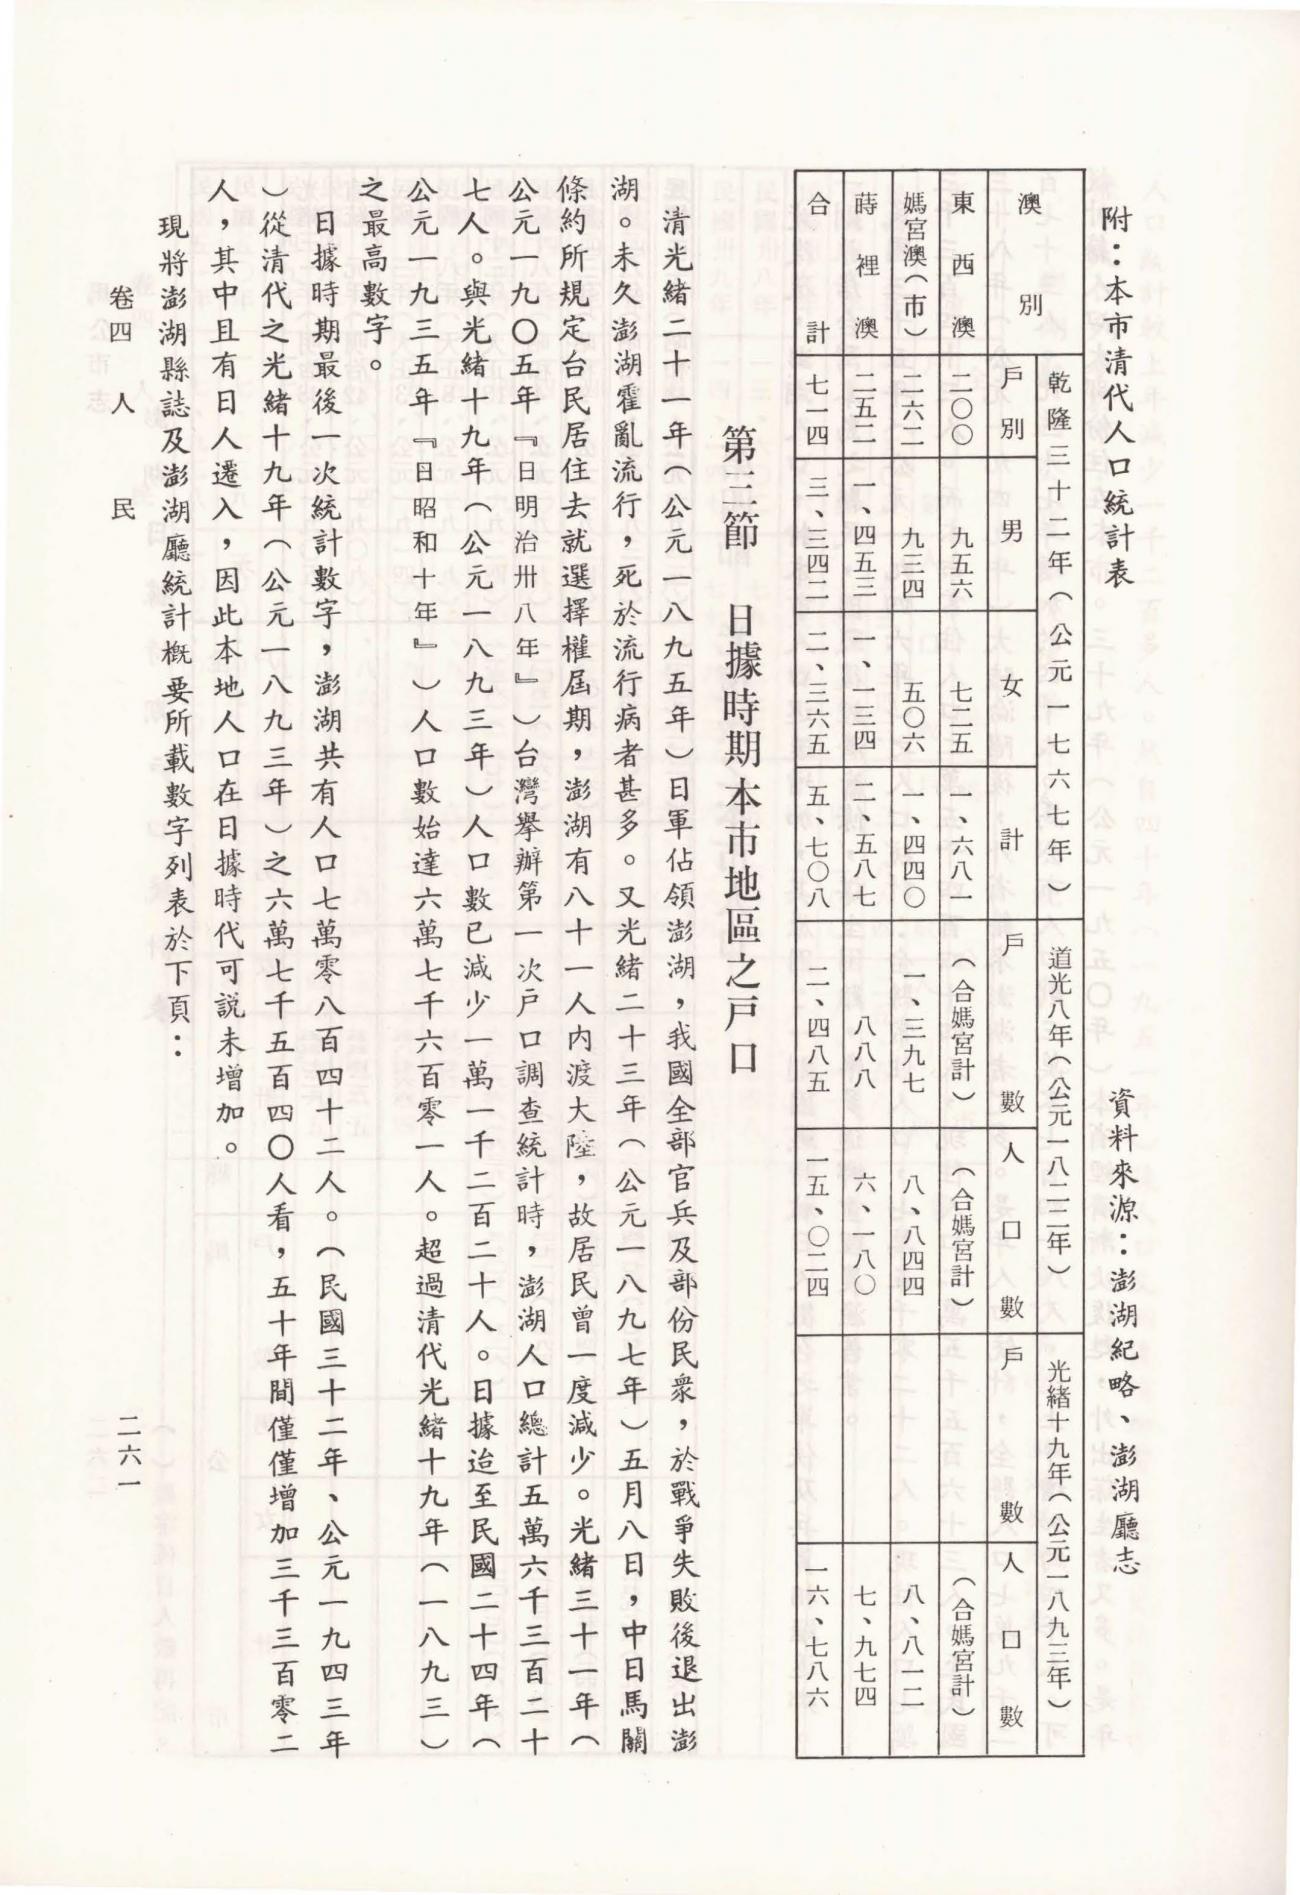 附：本市清代人口統計表　資料來源：澎湖紀略、澎湖廳志
澳別　乾隆三十二年（公元一七六七年）　道光八年（公元一八二二年）　光緒十九年（公元一八九三年）
戶別　男　女　計　戶數　人口數　戶數　人口數
東西澳　二〇〇　九五六　七二五　一、六八一　（合媽宮計）　（合媽宮計）　（合媽宮計）
媽宮澳（市）　二六二　九三四　五〇六　一、四四〇　一、三九七　八、八四四　八、八一二
蒔裡澳　二五二　一、四五三　一、一三四　二、五八七　八八八　六、一八〇　七、九七四
合計　七一四　三、三四二　二、三六五　五、七〇八　二、四八五　一五、〇二四　一六、七八六
第三節　日據時期本市地區之戶口
清光緒二十一年（公元一八九五年）日軍佔領澎湖，我國全部官兵及部份民衆，於戰爭失敗後退出澎
湖。未久澎湖霍亂流行，死於流行病者甚多。又光緒二十三年（公元一八九七年）五月八日，中日馬關
條約所規定台民居住去就選擇權屆期，澎湖有八十一人內渡大陸，故居民曾一度減少。光緒三十一年（
公元一九〇五年『日明治卅八年』）台灣擧辦第一次戶口調查統計時，澎湖人口總計五萬六千三百二十
七人。與光緒十九年（公元一八九三年）人口數已減少一萬一千二百二十人。日據迨至民國二十四年（
公元一九三五年『日昭和十年』）人口數始達六萬七千六百零一人。超過清代光緒十九年（一八九三）
之最高數字。
日據時期最後一次統計數字，澎湖共有人口七萬零八百四十二人。（民國三十二年、公元一九四三年
）從清代之光緒十九年（公元一八九三年）之六萬七千五百四〇人看，五十年間僅僅增加三千三百零二
人，其中且有日人遷入，因此本地人口在日據時代可説未增加。
現將澎湖縣誌及澎湖廳統計概要所載數字列表於下頁：
卷四　人民　二六一